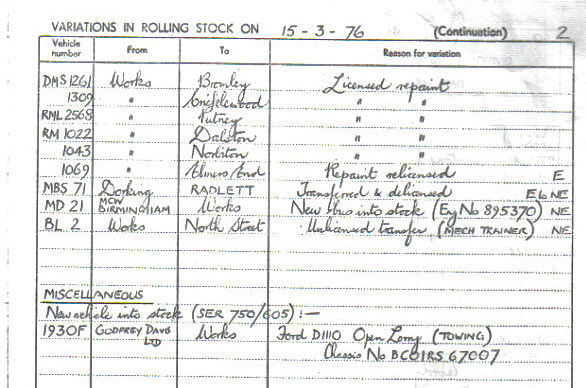 VARIATIONS IN ROLLING STOCK ON 15-3-76 (Continuation) 2
Vehicle number From To Reason for variation
DMS 1261 Works Bromley Licensed repaint
1309 " Cricklewood " "
RML 2568 " Putney " "
RM 1022 " Dalston " "
1043 " Norbiton " "
1069 " Elmers End Repaint relicensed E
MBS 71 Dorking RADLETT Transferred & delicensed E to NE
MD 21 MCW BIRMINGHAM Works New bus into stock (Eng No 895370) NE
BL 2 Works North Street Unlicensed transfer (MECH TRAINER) NE
MISCELLANEOUS
New vehicle into stock (SER 750/605) :—
1930F GODFREY DAVIS LTD Works Ford D1110 Open Lorry (TOWING)
Chassis No BC01RS 67007